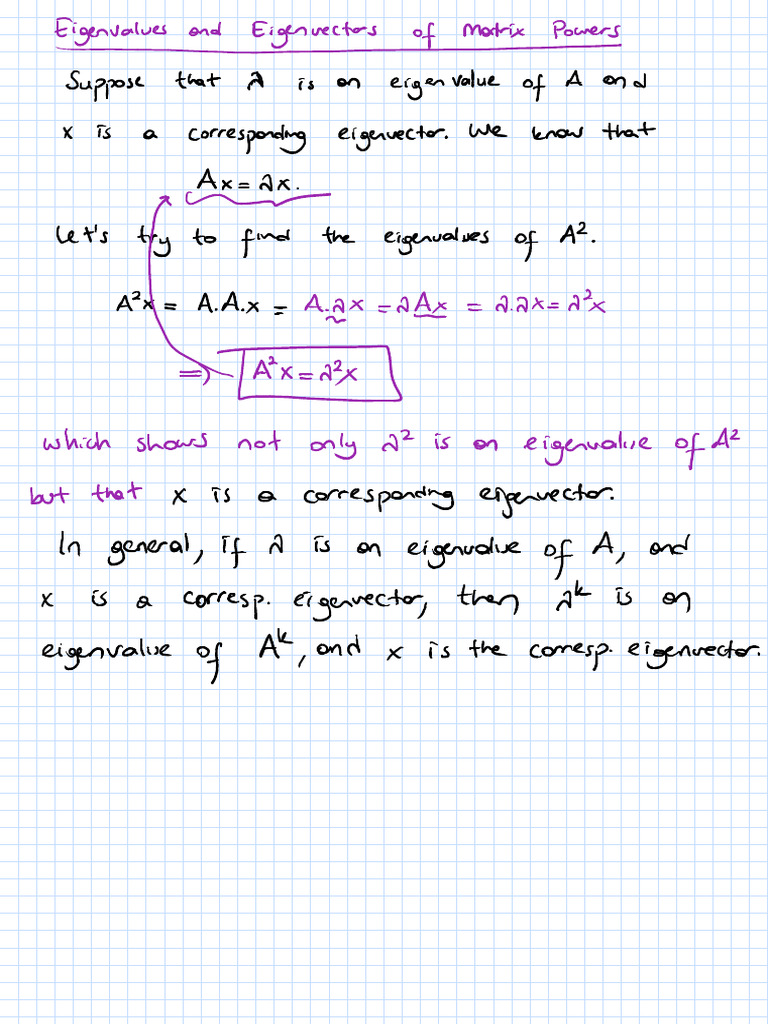 Eigenvalues and Eigenvectors of Matrix Powers
Suppose that λ is an eigenvalue of A and
x is a corresponding eigenvector. We know that
Ax = λx.
Let's try to find the eigenvalues of A².
A²x = A.A.x = A.λx = λAx = λ.λx = λ²x
⇒ A²x = λ²x
which shows not only λ² is an eigenvalue of A²
but that x is a corresponding eigenvector.
In general, if λ is an eigenvalue of A, and
x is a corresp. eigenvector, then λᵏ is an
eigenvalue of Aᵏ, and x is the corresp. eigenvector.